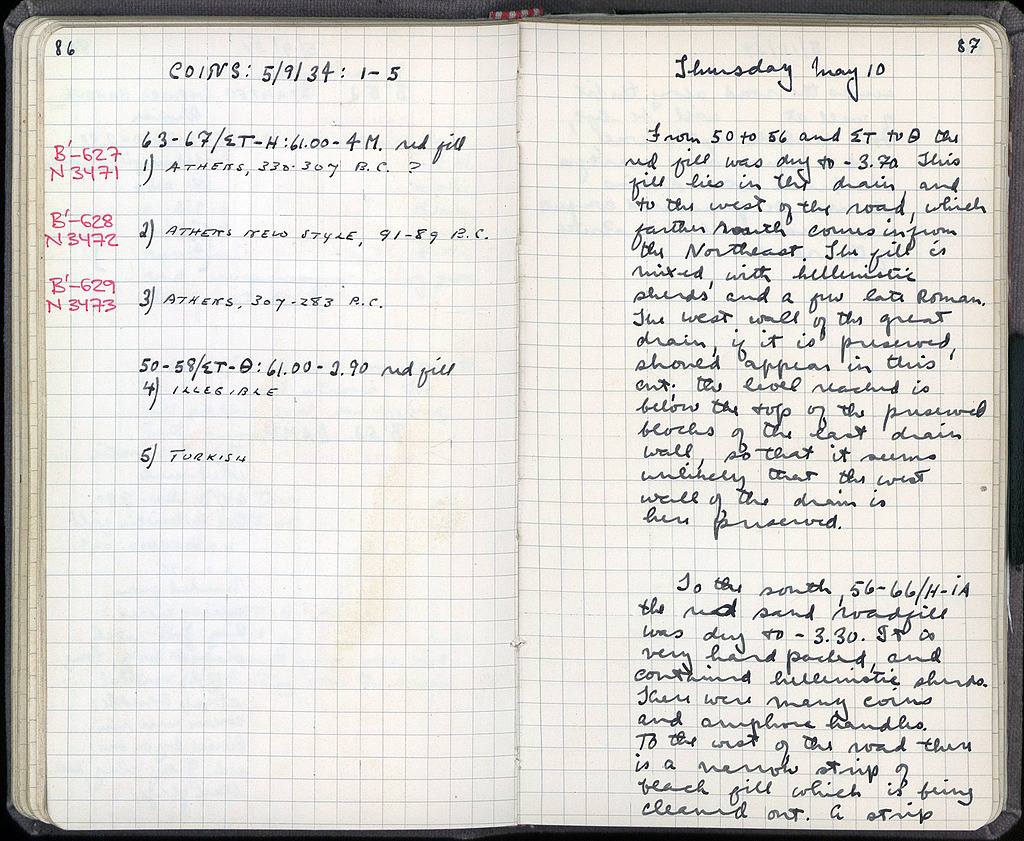 86
COINS: 5/9/34: 1-5
63-67/ΣT-H:61.00-4M. red fill
B'-627
N 3471
1) ATHENS, 330-307 B.C. ?
B'-628
N 3472
2) ATHENS NEW STYLE, 91-89 B.C.
B'-629
N 3473
3) ATHENS, 307-283 B.C.
50-58/ΣT-Θ:61.00-2.90 red fill
4) ILLEGIBLE
5) TURKISH
87
Thursday May 10
From 50 to 56 and ΣT to Θ the
red fill was dug to -3.70. This
fill lies in the drain, and
to the west of the road, which
farther south comes in from
the Northeast. The fill is
mixed, with hellenistic
sherds, and a few late Roman.
The west wall of the great
drain, if it is preserved,
should appear in this
cut. The level reached is
below the top of the preserved
blocks of the east drain
wall, so that it seems
unlikely that the west
wall of the drain is
here preserved.
To the south, 56-66/H-iA
the red sand roadfill
was dug to -3.30. It is
very hard packed, and
contained hellenistic sherds.
There were many coins
and amphora handles.
To the west of the road there
is a narrow strip of
black fill which is being
cleaned out. A strip